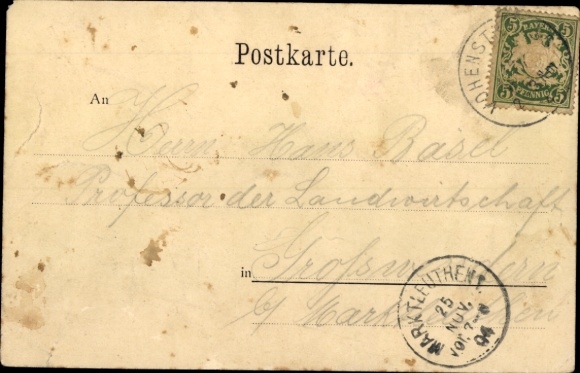 Postkarte.
5 BAYERN 5
5 PFENNIG 5
HOHENST
An Herrn Hans Basel
Professor der Landwirtschaft
in
MARKTLEUTHEN
25
NOV.
VOR. 7-8
04